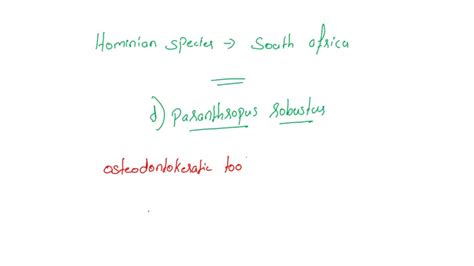 Hominian species → South africa
d) Paranthropus robustus
osteodontokeratic too